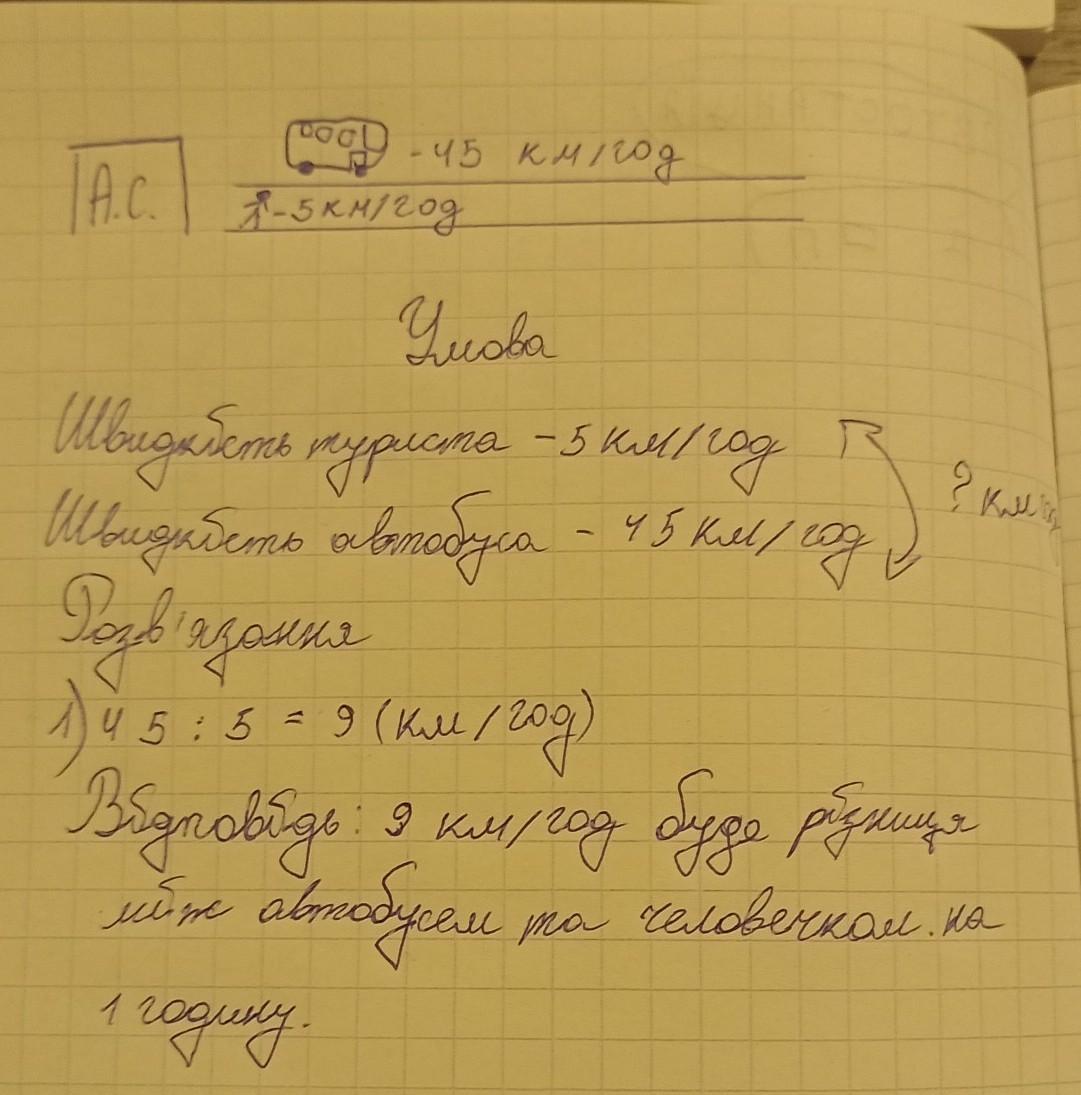 А.С.
- 45 км/год
- 5 км/год
Умова
Швидкість туриста - 5 км/год
Швидкість автобуса - 45 км/год
? км/год
Розв'язання
1) 45 : 5 = 9 (км/год)
Відповідь: 9 км/год буде різниця
між автобусем та человечком. на
1 годину.